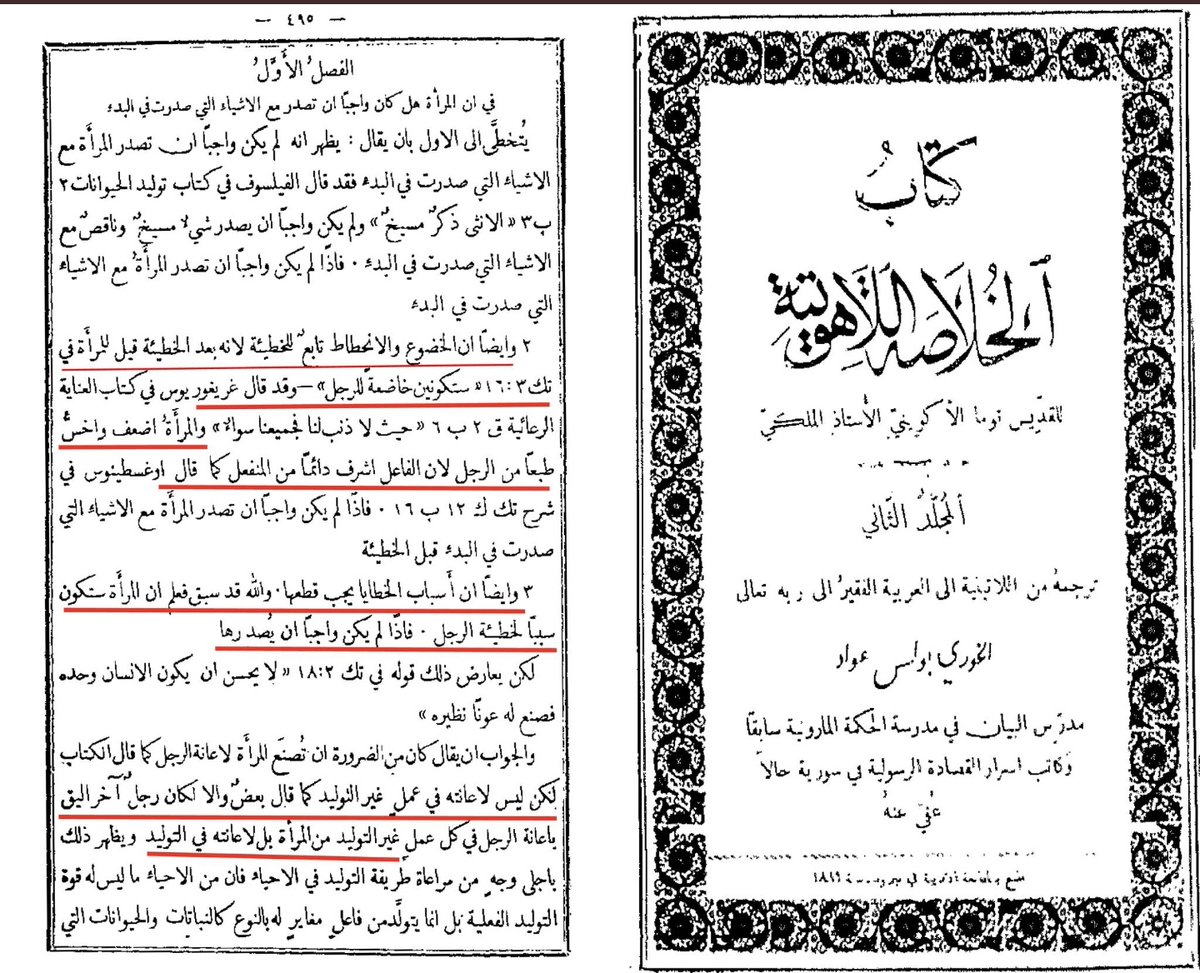 كتابُ
أَلخُلاَصَة اللاَّهُوتيَّة
للقدّيس توما الأكوينيّ الأُستاذ الملكيّ
أَلمُجلَّدُ الثَّاني
ترجمهُ من اللاتينية الى العربية الفقيرُ الى ربه تعالى
الخوري بولس عواد
مدرّس البيان في مدرسة الحكمة المارونية سابقًا
وكاتب اسرار القصادة الرسولية في سورية حالاً
عُفِيَ عنهُ
سنة ١٨٩٩
— ٤٩٥ —
الفصلُ الأَوَّلُ
في ان المرأة هل كان واجبًا ان تصدر مع الاشياء التي صدرت في البدء
يُتخطَّى الى الاول بان يقال : يظهر انه لم يكن واجبًا ان تصدر المرأَة مع
الاشياء التي صدرت في البدء فقد قال الفيلسوف في كتاب توليد الحيوانات ٢
ب ٣ « الانثى ذكرٌ مسيخٌ » ولم يكن واجبًا ان يصدر شيءٌ مسيخٌ وناقصٌ مع
الاشياء التي صدرت في البدء ٠ فاذًا لم يكن واجبًا ان تصدر المرأَةُ مع الاشياء
التي صدرت في البدء
٢ وايضًا ان الخضوع والانحطاط تابعٌ للخطيئة لانه بعد الخطيئة قيل للمرأة في
تك ٣ : ١٦ « ستكونين خاضعةً للرجل » — وقد قال غريغوريوس في كتاب العناية
الرعائية ق ٢ ب ٦ « حيث لا ذنب لنا فجميعنا سواءٌ » والمرأَةُ اضعف واخسُّ
طبعًا من الرجل لان الفاعل اشرف دائمًا من المنفعل كما قال اوغسطينوس في
شرح تك ك ١٢ ب ١٦ ٠ فاذًا لم يكن واجبًا ان تصدر المرأة مع الاشياء التي
صدرت في البدء قبل الخطيئة
٣ وايضًا ان أَسباب الخطايا يجب قطعها ٠ والله قد سبق فعلم ان المرأَة ستكون
سببًا لخطيئة الرجل ٠ فاذًا لم يكن واجبًا ان يُصدرها
لكن يعارض ذلك قوله في تك ٢ : ١٨ « لا يحسن ان يكون الانسان وحده
فصنع له عونًا نظيره »
والجواب ان يقال كان من الضرورة ان تُصنَع المرأة لاعانة الرجل كما قال الكتاب
لكن ليس لاعانته في عملٍ غير التوليد كما قال بعضٌ والا لكان رجلٌ آخر اليق
باعانة الرجل في كل عمل غير التوليد من المرأة بل لاعانته في التوليد ويظهر ذلك
باجلى وجهٍ من مراعاة طريقة التوليد في الاحياء فان من الاحياء ما ليس له قوة
التوليد الفعلية بل انما يتولَّد من فاعلٍ مغايرٍ له بالنوع كالنباتات والحيوانات التي